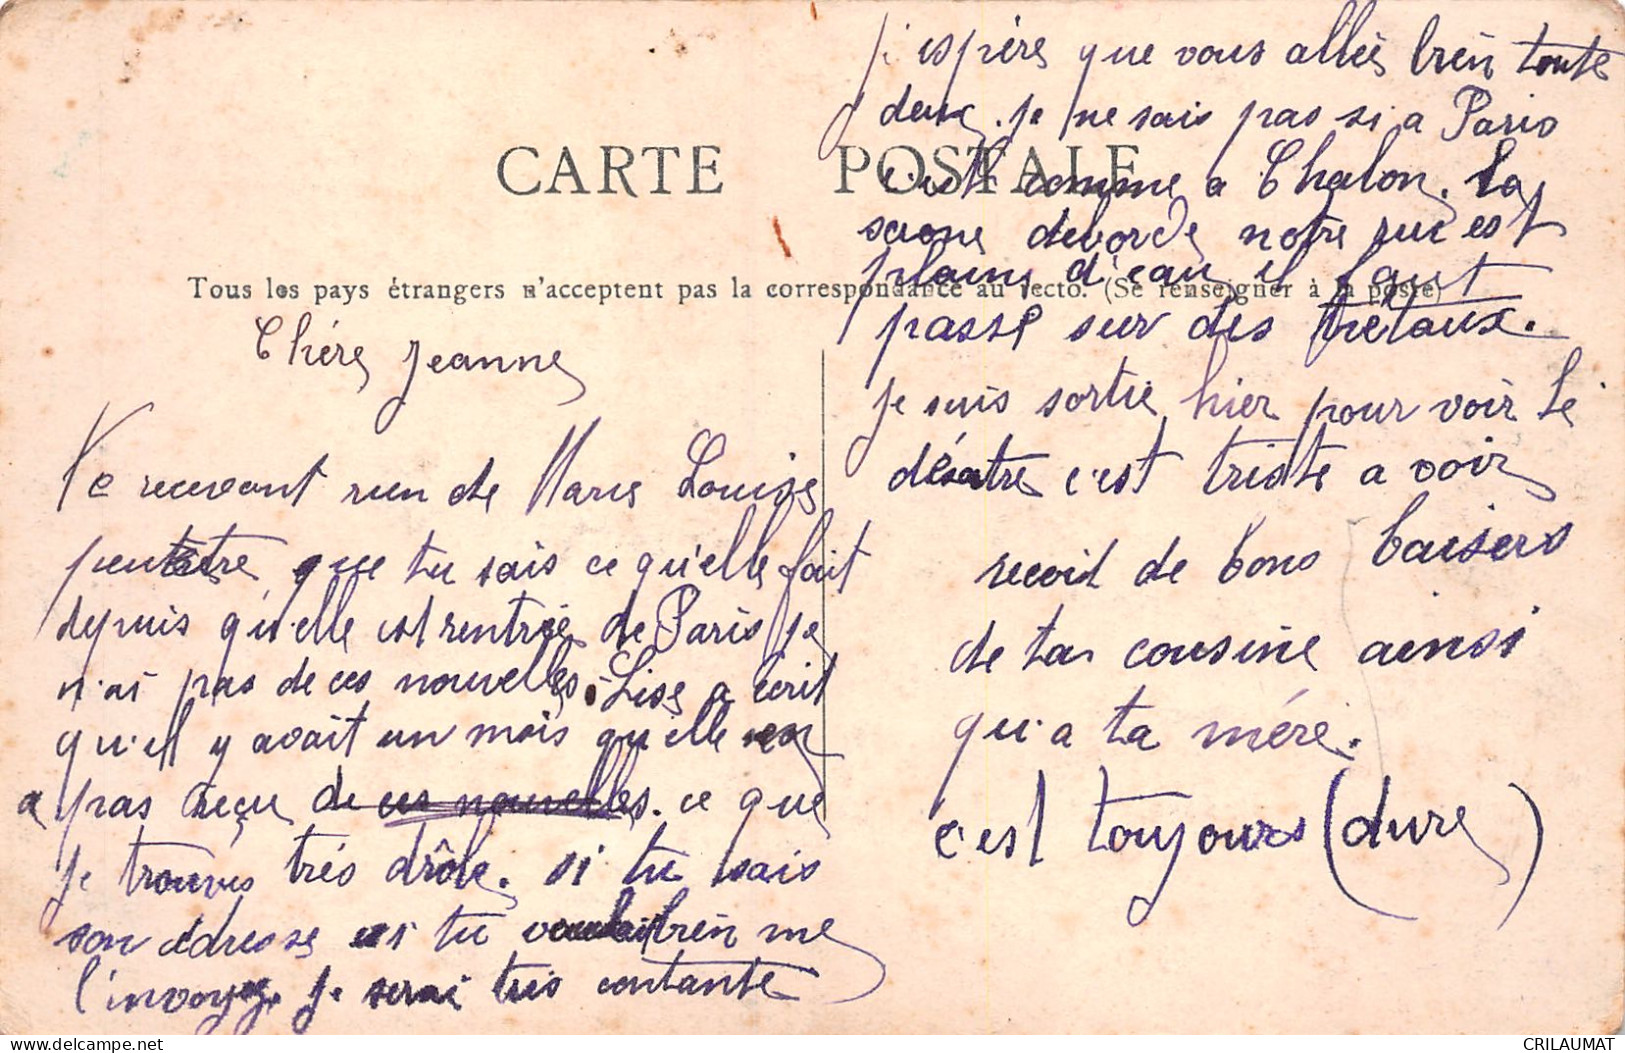 CARTE POSTALE
Tous les pays étrangers n'acceptent pas la correspondance au recto. (Se renseigner à la poste)
Chére Jeanne
Ne recevant rien de Marie Louise
peutetre que tu sais ce qu'elle fait
depuis qu'elle est rentrée de Paris je
n'ai pas de ces nouvelles. Lise a écrit
qu'ell y avait un mois qu'elle
a pas reçu de ces nouvelles. ce que
je trouves trés drôle. si tu sais
son adresse si tu voulait bien me
l'invoyez. Je serai tris contante
j'espére que vous alleis bien toute
deux. je ne sais pas si a Paris
c'est comme a Chalon. La
saone deborde notre rue est
plain d'eau il faut
passé sur des tretaux.
je suis sortie hier pour voir le
désatre c'est triste a voir
recoit de bons baisers
de ta cousine ainsi
qu'a ta mére.
c'est toujours (dure)
delcampe.net
CRILAUMAT